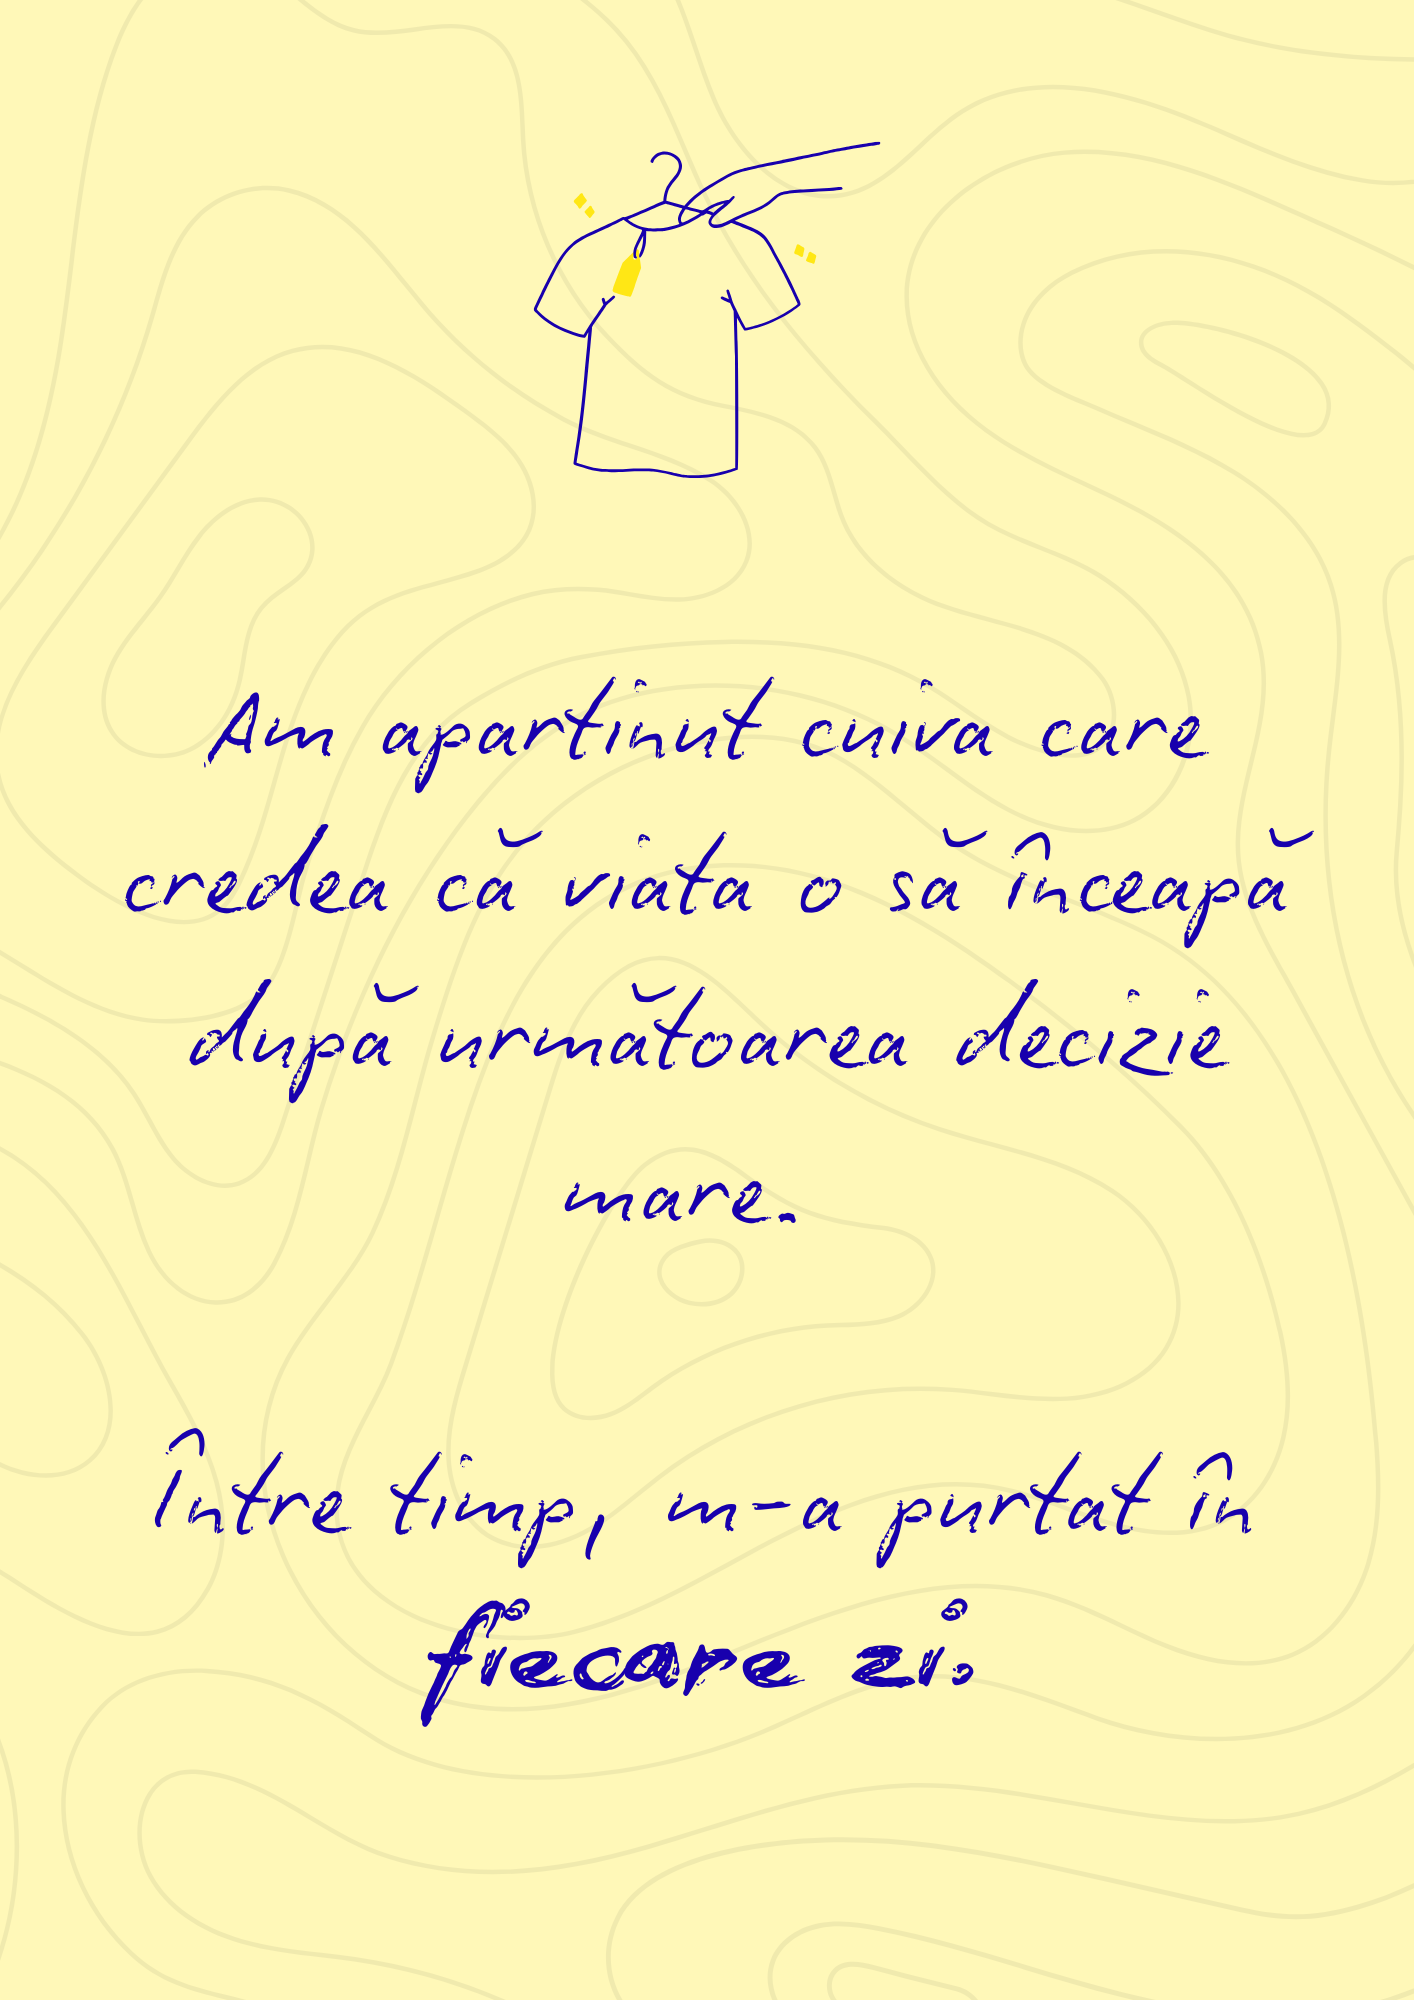 Am apartinut cuiva care
credea că viata o să înceapă
după următoarea decizie
mare.
Între timp, m-a purtat în
fiecare zi.